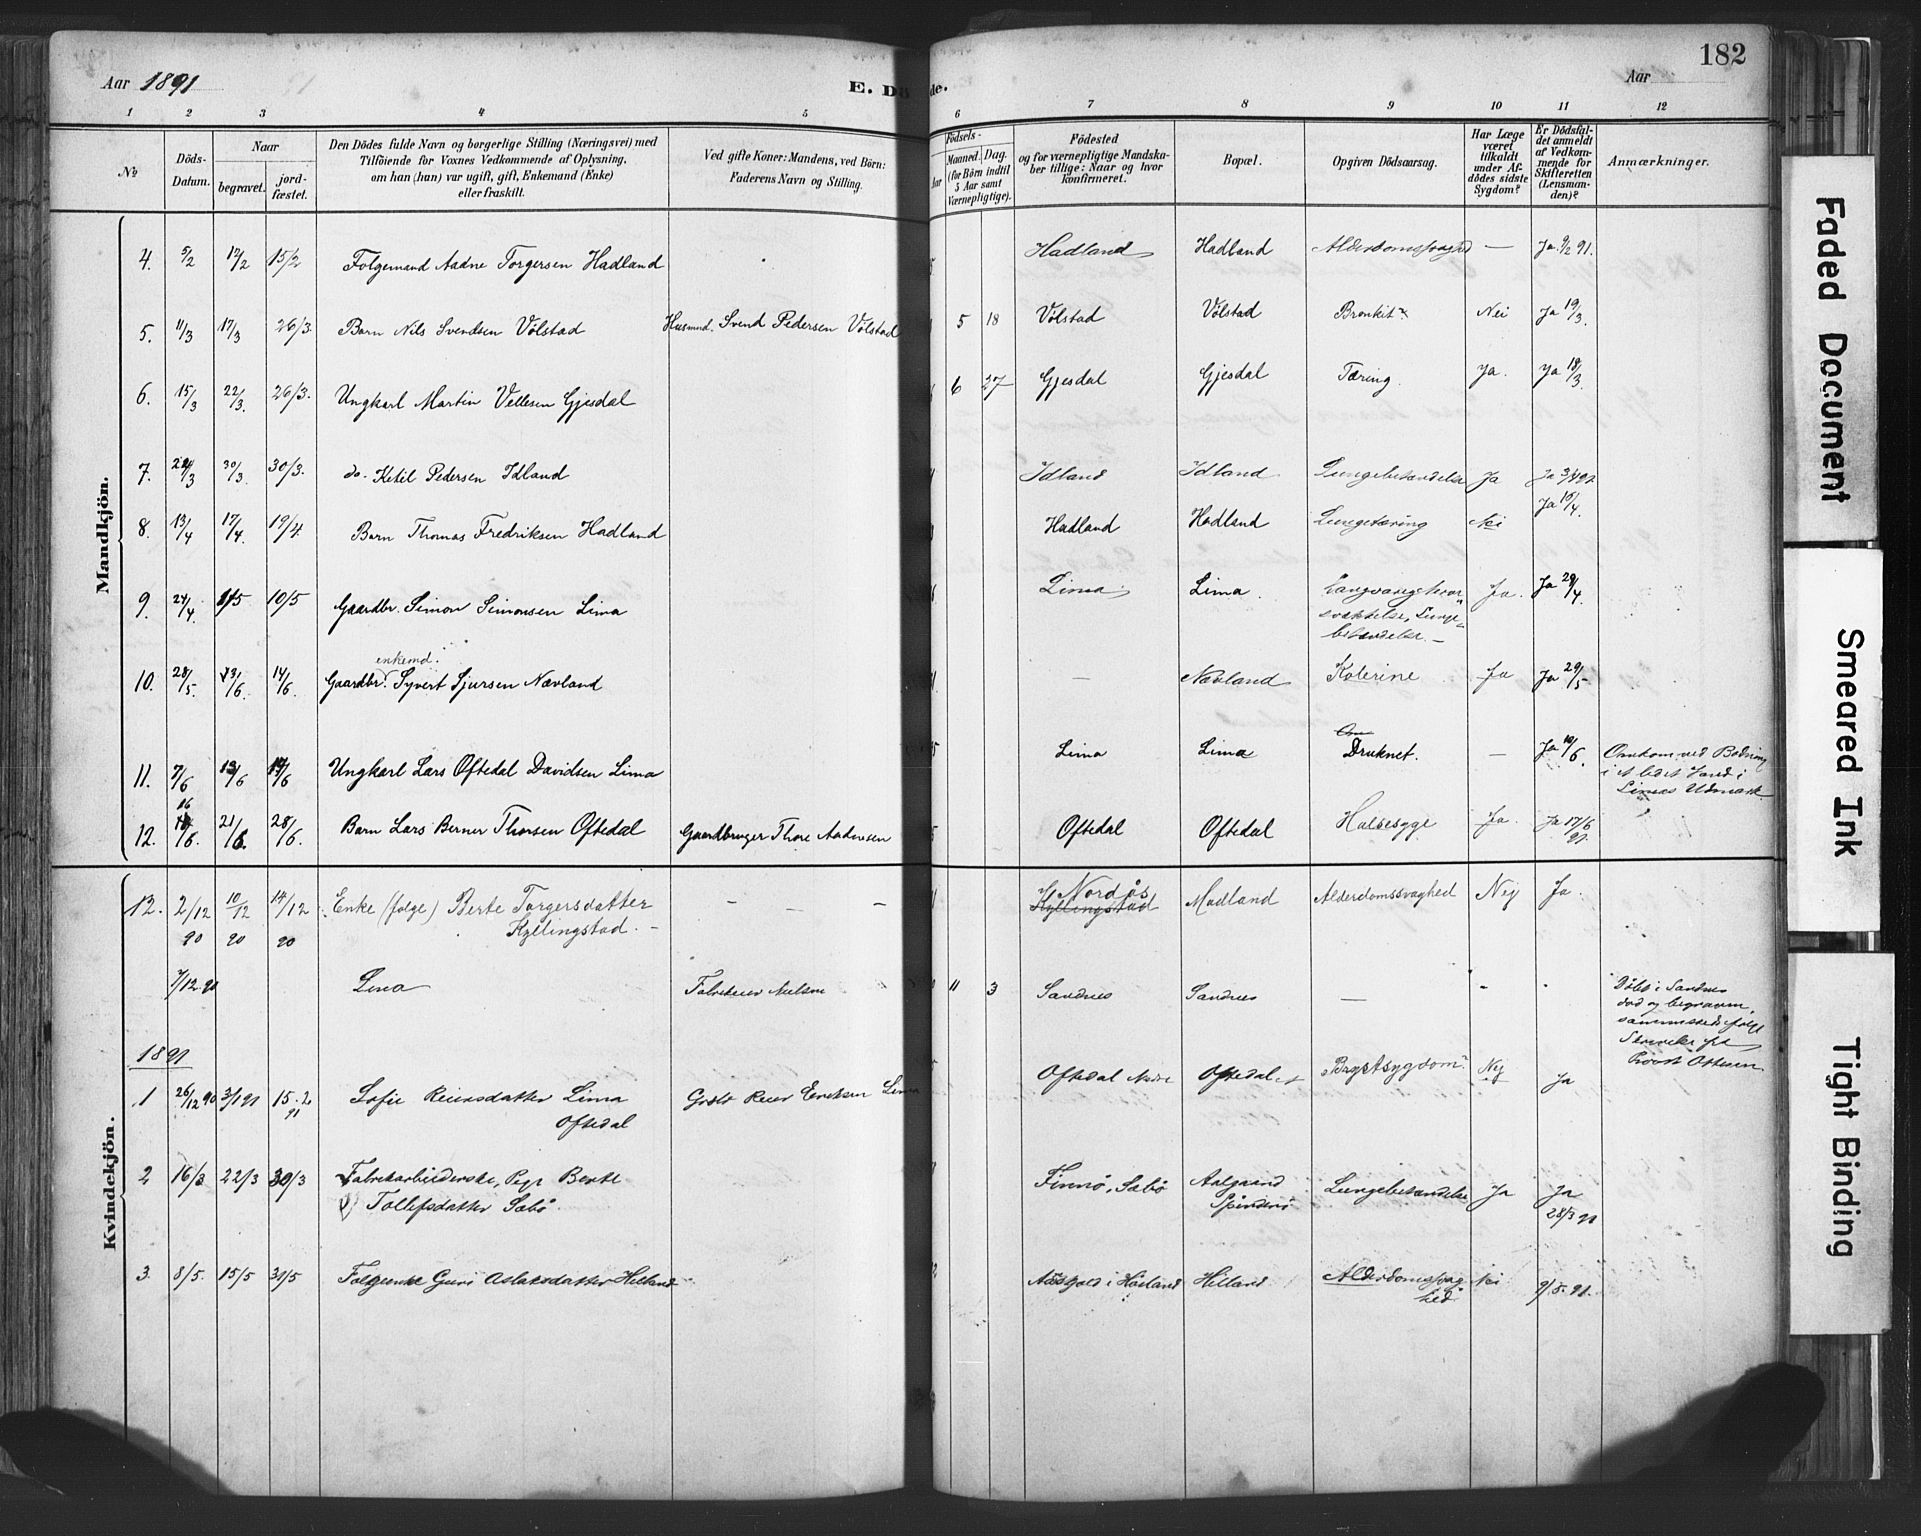 Aar 1891
E. Dö
de.
Aar
182
1 2 3 4 5 6 7 8 9 10 11 12
No
Döds-Datum.
Naar
begravet.
jord-fæstet.
Den Dödes fulde Navn og borgerlige Stilling (Næringsvei) med
Tilföiende for Voxnes Vedkommende af Oplysning,
om han (hun) var ugift, gift, Enkemand (Enke)
eller fraskilt.
Ved gifte Koner: Mandens, ved Börn:
Faderens Navn og Stilling.
Födsels-
Aar
Maaned. Dag.
(for Börn indtil
5 Aar samt
Værnepligtige).
Födested
og for værnepligtige Mandska-
ber tillige: Naar og hvor
konfirmeret.
Bopæl.
Opgiven Dödsaarsag.
Har Læge
været
tilkaldt
under Af-
dödes sidste
Sygdom?
Er Dödsfal-
det anmeldt
af Vedkom-
mende for
Skifteretten
(Lensman-
den)?
Anmærkninger.
Mandkjön.
4. 5/2 12/2 15/2 Folgemand Aadne Torgersen Hadland Hadland Hadland Alderdomssvaghed — Ja 9/2 91.
5. 11/3 17/3 26/3. Barn Nils Svendsen Völstad Husmd. Svend Pedersen Völstad 5 18 Völstad Völstad Bronkit Nei Ja 19/3.
6. 15/3 22/3. 26/3. Ungkarl Martin Vellesen Gjesdal 6 27 Gjesdal Gjesdal Tæring. Ja. Ja 18/3.
7. 24/3 30/3. 30/3. do. Ketil Pedersen Idland Idland Idland Lungebetændelse Ja Ja
8. 13/4 17/4. 19/4 Barn Thomas Fredriksen Hadland Hadland Hadland Lungetæring Nei Ja 19/4.
9. 24/4. 1/5 10/5 Gaardbr. Simon Simonsen Lima Lima Lima. Langvarig
svækkelse, Lunge-
betændelse. — Ja. Ja 29/4.
enkemd.
10. 28/5. 13/6. 14/6. Gaardbr. Syvert Sjursen Nævland — Nævland Kolerine Ja Ja 29/5
11. 7/6 13/6 14/6 Ungkarl Lars Oftedal Davidsen Lima Lima Lima Druknet. — Ja 10/6. Omkom ved Badning
i et lidet Vand i
Limas Udmark.
12. 16/6. 21/6. 28/6. Barn Lars Berner Thorsen Oftedal Gaardbruger Thore Aadnesen Oftedal Oftedal Halssyge Ja. Ja 17/6 91.
Kvindekjön.
12. 2/12 90 10/12 90 14/12 90 Enke (folge) Berte Torgersdatter
Kyllingstad. — — — — Nordås
Kyllingstad Madland Alderdomssvaghed Nej Ja.
7/12 90 Lina 11 3 Sandnes Sandnes — Döbt i Sandnes
död og begraven
1891
1 26/12 90 3/1 91 15.2. 91 Sofie Reiersdatter Lima
Oftedal Grdbr Reier Eriksen Lima Oftedal Nedre Oftedal Brystsygdom Nej Ja
2 16/3 22/3 30/3 Fabrikarbeiderske, Pige Berte
Tollefsdatter Sæbö. Finnö, Sæbö Aalgaard
Spinderi Lungebetændelse Ja Ja
28/3 91
3. 8/5. 15/5 31/5 Folgeenke Guri Aslaksdatter Helland Helland Alderdomssvag-
hed Nei 9/5. 91.
Faded Document
Smeared Ink
Tight Binding